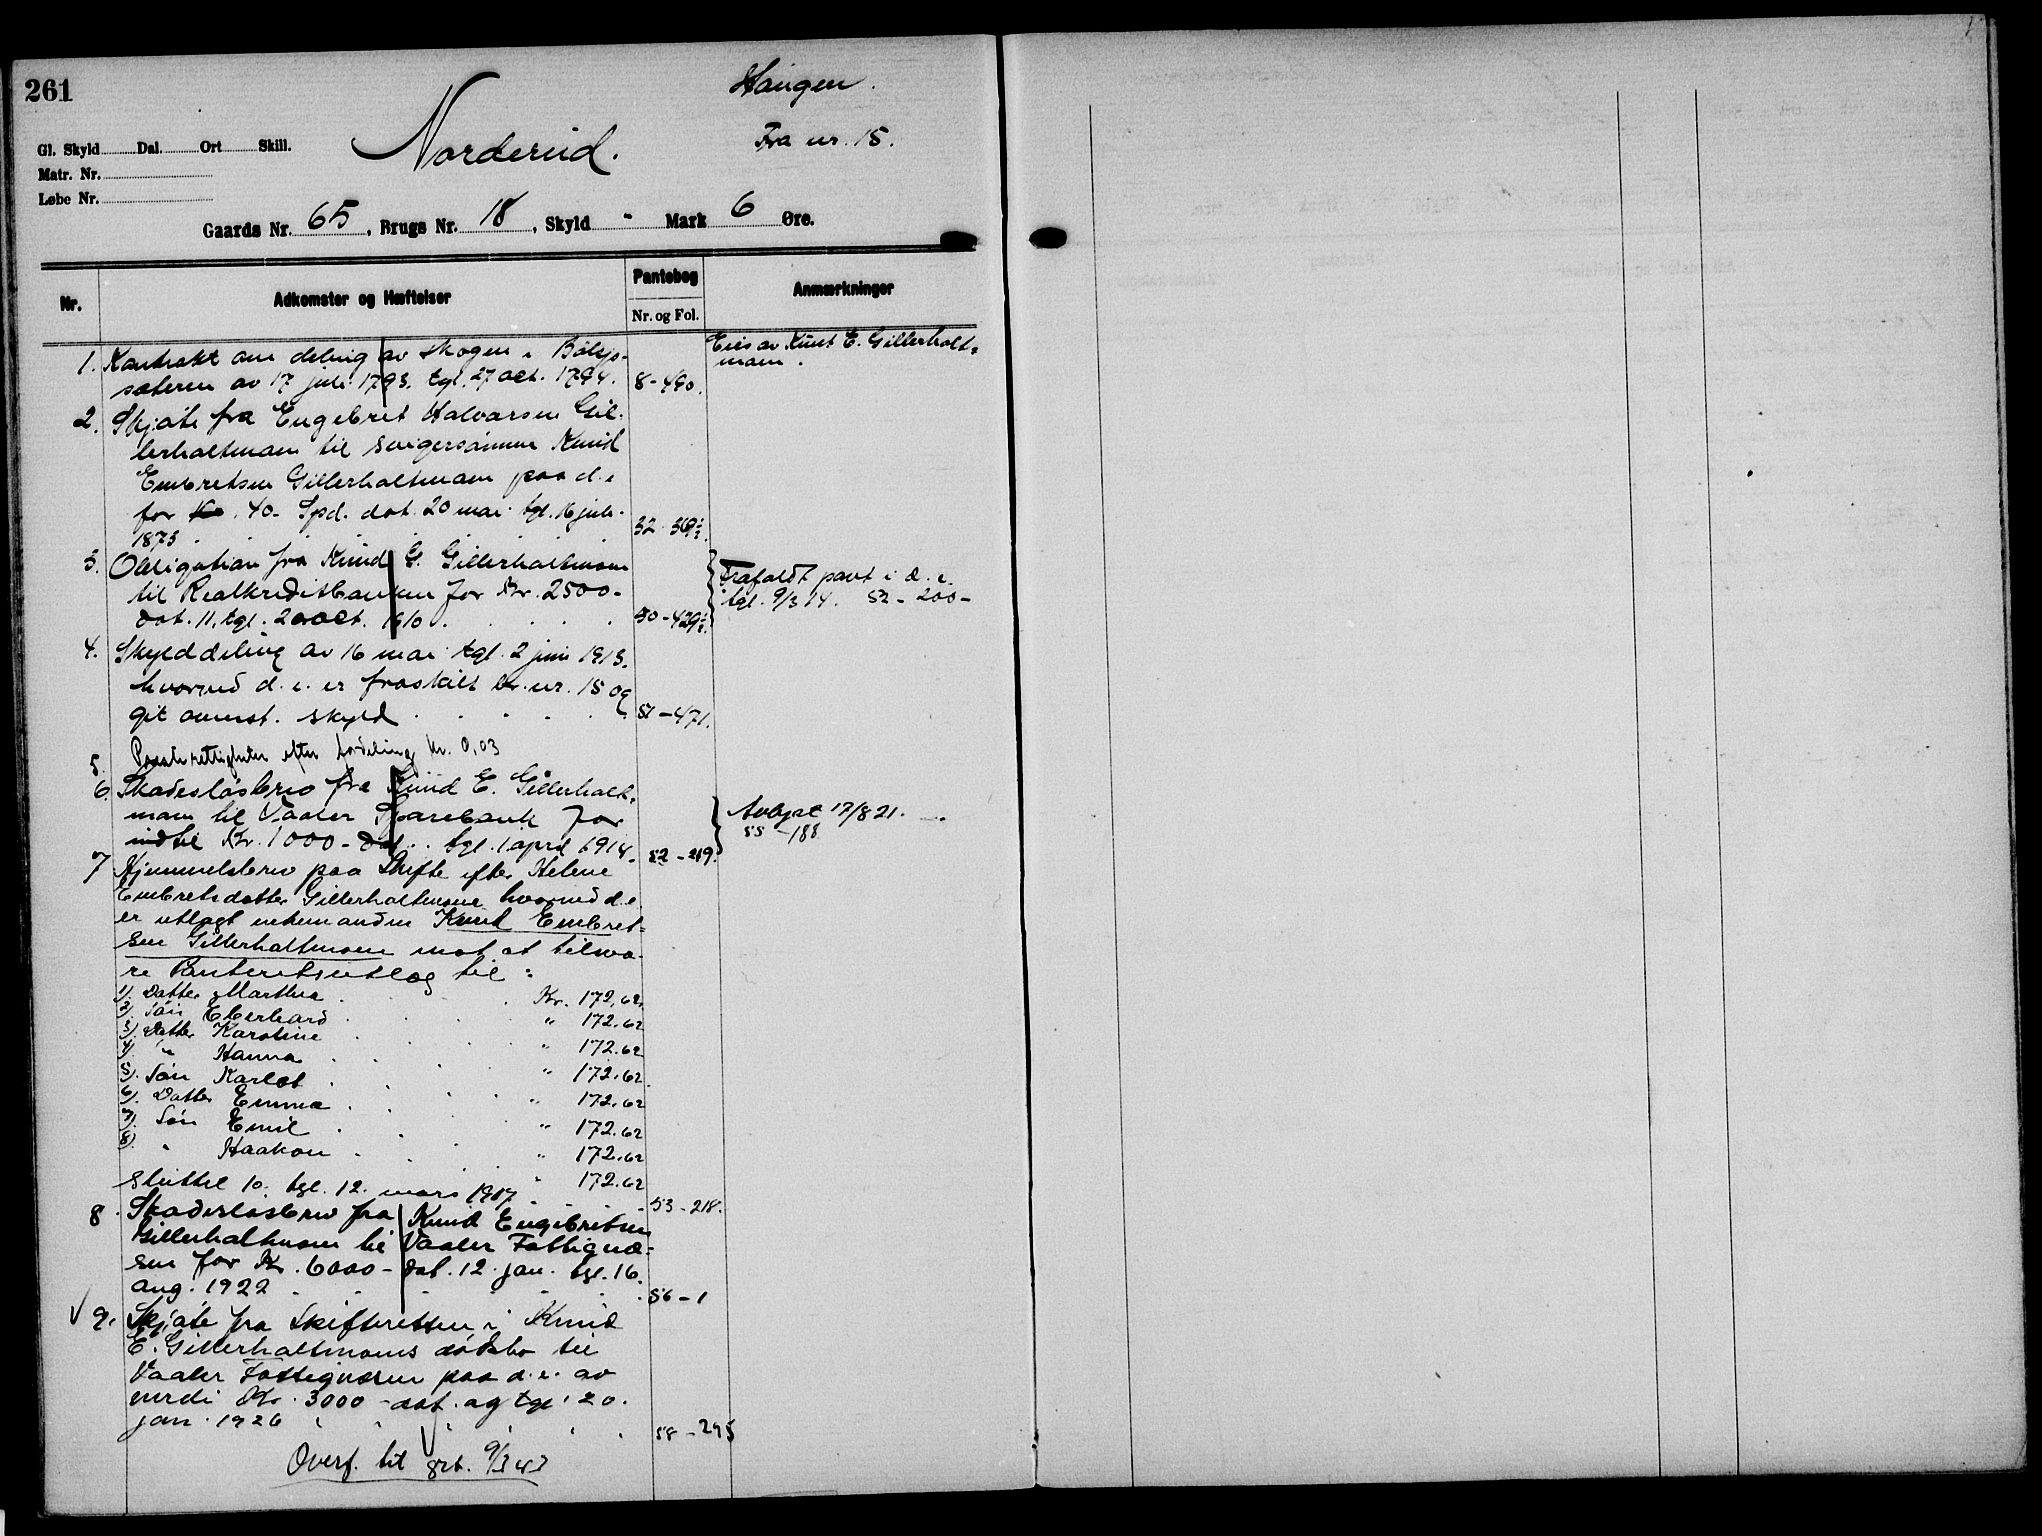 261
Haugen.
Norderud.
Fra nr. 15.
Gl. Skyld Dal. Ort Skill.
Matr. Nr.
Løbe Nr.
Gaards Nr. 65, Brugs Nr. 18, Skyld - Mark 6 Øre.
Nr. Adkomster og Hæftelser Pantebog Nr. og Fol. Anmærkninger
1. Kontrakt om deling av skogen i
sæteren av 17 juli 1793. tgl. 27 oct. 1794. 8-490.
Eies av Knut E. Gillerholt=
moen.
2. Skjøte fra Engebret Halvorsen Gil-
lerholtmoen til svigersønnen Knud
Embretsen Gillerholtmoen paa d.e.
for Kr. 40- Spd. dat. 20 mai tgl. 16 juli
1873 32-
3. Obligation fra Knud G. Gillerholtmoen
til Realkreditbanken for Kr. 2500-
dat. 11. tgl. 20 oct. 1910. 50-429½.
Frafaldt pant i d.e.
tgl. 9/3 14. 52-200-
4. Skylddeling av 16 mai tgl. 2 juni 1913.
hvorved d.e. er fraskilt br.nr. 15 og
git ovenst. skyld 51-471.
5. efter fordeling kr. 0,03
6. Skadesløsbrev fra Knud E. Gillerholt=
moen til Vaaler Sparebank for
indtil Kr. 1000- dat. tgl. 1 april 1914. 52-219.
Avlyst 17/8 21.
55-188
7 Hjemmelsbrev paa Skifte efter Helene
Embretsdatter Gillerholtmoen hvorved d.e.
er utlagt enkemanden Knud Embret=
sen Gillerholtmoen mot at tilsva-
re Panteretsutlæg til:
1). Datter Marthea Kr. 172,62
2). Søn Eberhard " 172.62
3). Datter Karoline " 172.62
4). " Hanna " 172.62
5). Søn Karlot " 172.62
6). Datter Emma " 172.62
7). Søn Emil " 172.62
8). " Haakon " 172.62
sluttet 10. tgl. 12. mars 1917 53-218.
8. Skadesløsbrev fra Knud Engebretsen
Gillerholtmoen til Vaaler Fattigvæ=
sen for Kr. 6000- dat. 12. jan. tgl. 16.
aug. 1922 56-1
√ 9. Skjøte fra Skifteretten i Knud
E. Gillerholtmoens dødsbo til
Vaaler Fattigvæsen paa d.e. av
verdi Kr. 3000- dat. og tgl. 20.
jan. 1926 58-295
Overf. til grb. 9/3 43